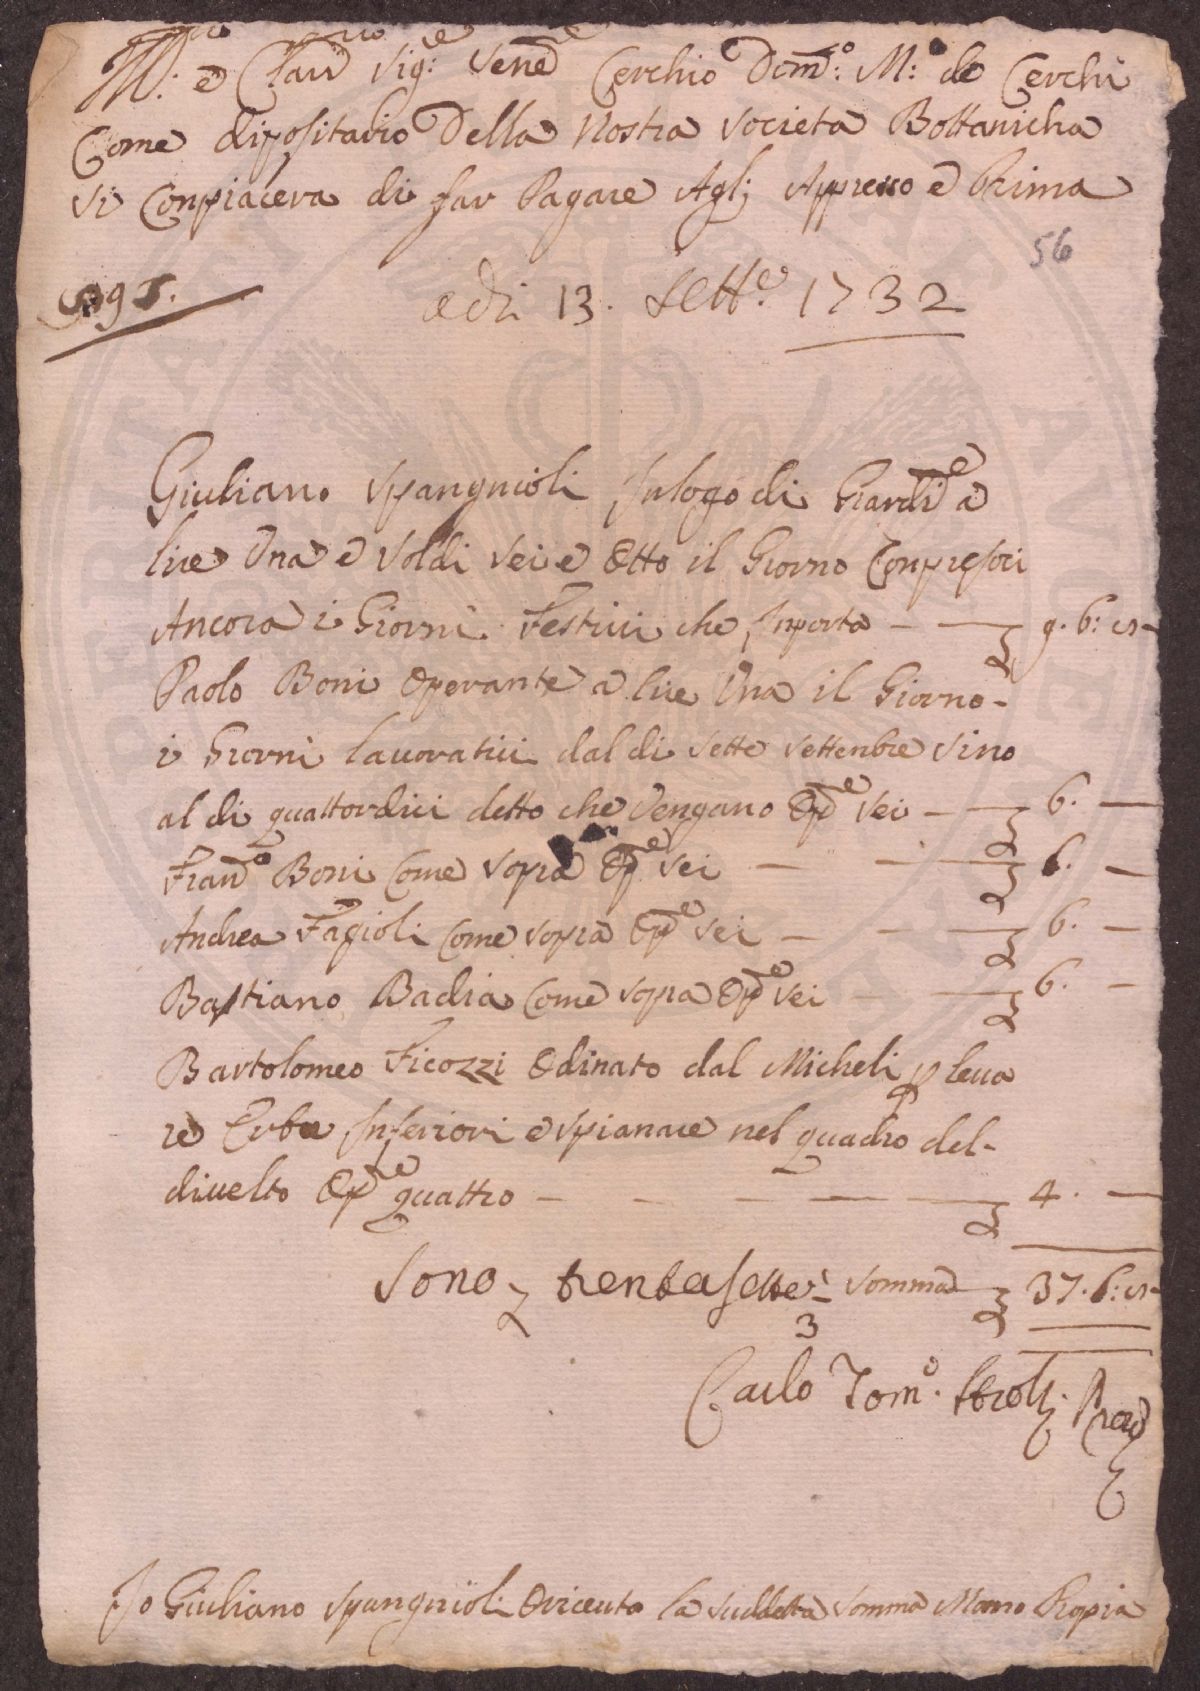 Ill: e Clar Sig:re Sene Cerchio Dom:co M:a de Cerchi
Come dipositario Della Nostra Societa Bottanicha
si Conpiacera di far Pagare Agli Appresso e Prima
56
adi 13. Sett:e 1732
Giuliano Spangnioli Inlogo di Giardi:e a
lire Una e Soldi sei e Otto il Giorno Conpresoci
Ancora i Giorni Festivi che Inporta — 9. 6: 8
Paolo Boni Operante a lire Una il Giorno
i Giorni lavorativi dal di sette settenbre sino
al di quattordici detto che Vengano Op:e sei — 6. —
Fran:co Boni Come sopra Op:e sei — 6. —
Andrea Fagioli Come sopra Op:e sei — 6. —
Bastiano Badia Come sopra Op:e sei — 6. —
Bartolomeo Ficozzi Odinato dal Micheli p leva
re Erbe Inferiori e spianare nel quadro del
divelto Op:e quattro — 4. —
Sono trentasette somma 37. 6: 8
Carlo Tom:o
Io Giuliano Spangnioli Oriceuto la suddetta somma Mano Propia